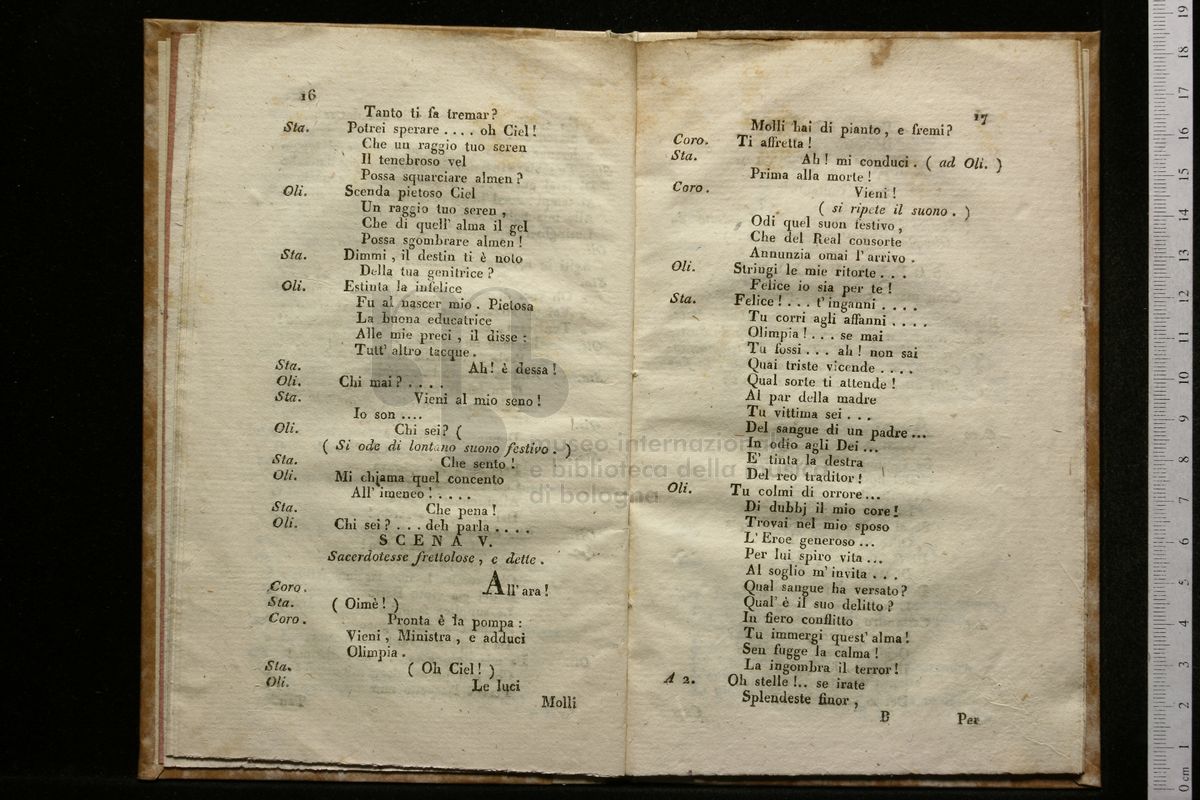 16
Tanto ti fa tremar?
Sta. Potrei sperare .... oh Ciel!
Che un raggio tuo seren
Il tenebroso vel
Possa squarciare almen?
Oli. Scenda pietoso Ciel
Un raggio tuo seren,
Che di quell' alma il gel
Possa sgombrare almen!
Sta. Dimmi, il destin ti è noto
Della tua genitrice?
Oli. Estinta la infelice
Fu al nascer mio. Pietosa
La buona educatrice
Alle mie preci, il disse:
Tutt' altro tacque.
Sta. Ah! è dessa!
Oli. Chi mai? ....
Sta. Vieni al mio seno!
Io son ....
Oli. Chi sei? (
( Si ode di lontano suono festivo. )
Sta. Che sento!
Oli. Mi chiama quel concento
All' imeneo! .....
Sta. Che pena!
Oli. Chi sei? ... deh parla ....
SCENA V.
Sacerdotesse frettolose, e dette.
Coro. All' ara!
Sta. ( Oimè! )
Coro. Pronta è la pompa:
Vieni, Ministra, e adduci
Olimpia.
Sta. ( Oh Ciel! )
Oli. Le luci
Molli
17
Molli hai di pianto, e fremi?
Coro. Ti affretta!
Sta. Ah! mi conduci. ( ad Oli. )
Prima alla morte!
Coro. Vieni!
( si ripete il suono. )
Odi quel suon festivo,
Che del Real consorte
Annunzia omai l' arrivo.
Oli. Stringi le mie ritorte ...
Felice io sia per te!
Sta. Felice! ... t' inganni ....
Tu corri agli affanni ....
Olimpia! ... se mai
Tu fossi ... ah! non sai
Quai triste vicende ....
Qual sorte ti attende!
Al par della madre
Tu vittima sei ...
Del sangue di un padre ...
In odio agli Dei ...
E' tinta la destra
Del reo traditor!
Oli. Tu colmi di orrore ...
Di dubbj il mio core!
Trovai nel mio sposo
L' Eroe generoso ...
Per lui spiro vita ...
Al soglio m' invita ...
Qual sangue ha versato?
Qual' è il suo delitto?
In fiero conflitto
Tu immergi quest' alma!
Sen fugge la calma!
La ingombra il terror!
A 2. Oh stelle!.. se irate
Splendeste finor,
B Per
museo internazionale
e biblioteca della musica
di bologna
0 cm 1 2 3 4 5 6 7 8 9 10 11 12 13 14 15 16 17 18 19